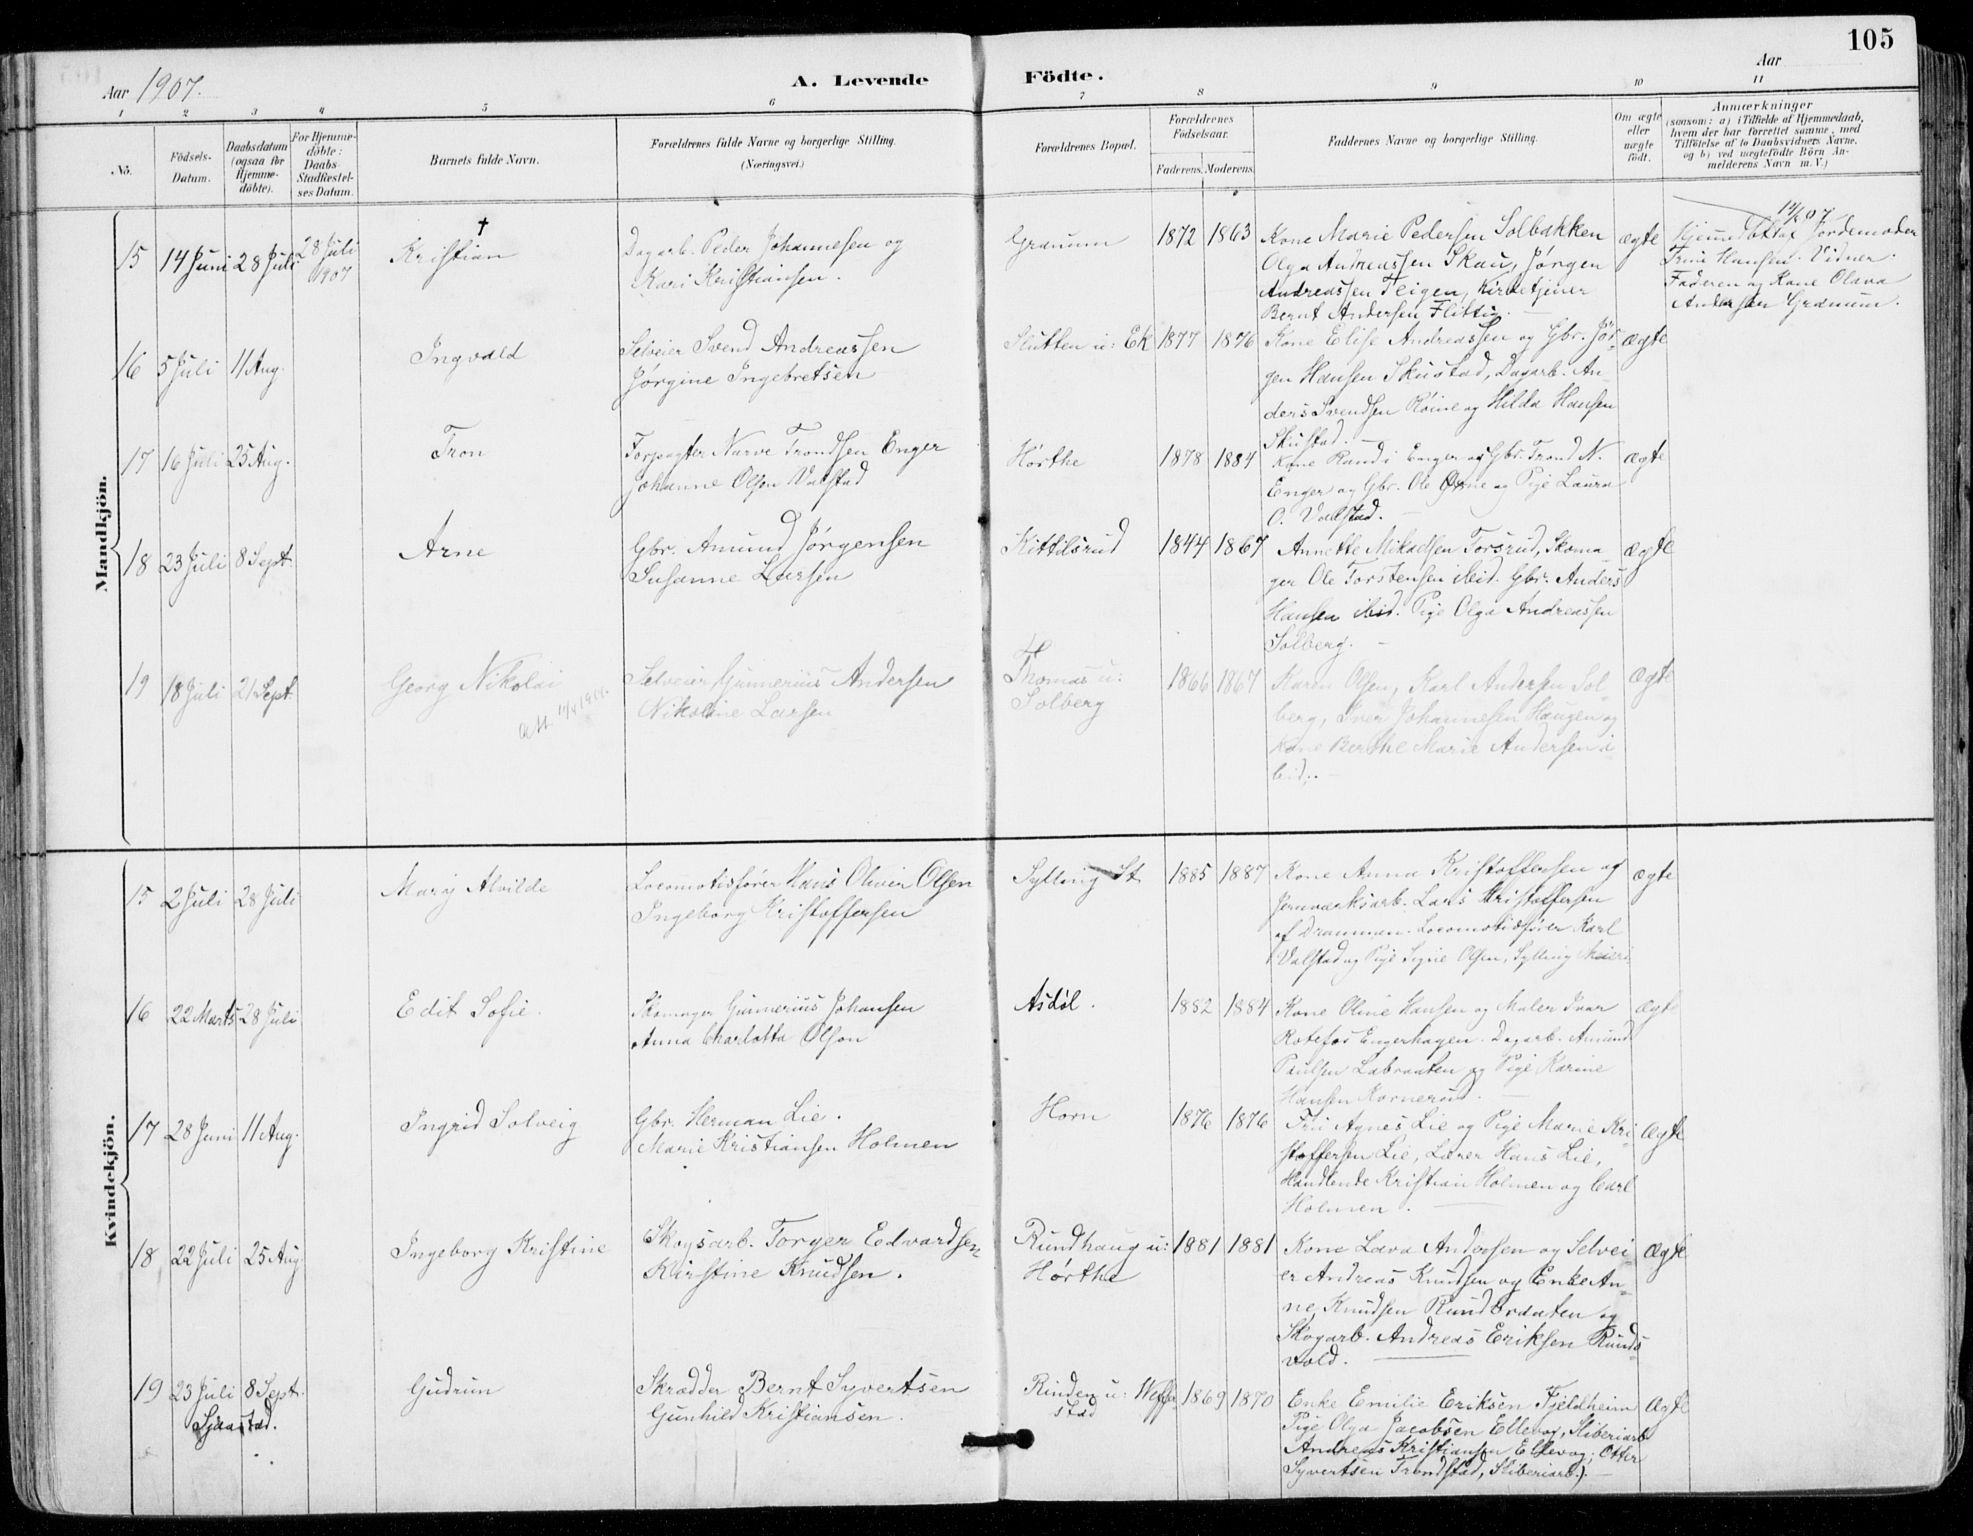 105
Aar 1907.
A. Levende Födte.
Aar
1 2 3 4 5 6 7 8 9 10 11
No.
Födsels-
Datum.
Daabsdatum
(ogsaa for
Hjemme-
döbte).
For Hjemme-
döbte:
Daabs-
Stadfæstel-
ses Datum.
Barnets fulde Navn.
Forældrenes fulde Navne og borgerlige Stilling.
(Næringsvei.)
Forældrenes Bopæl.
Forældrenes
Födselsaar.
Faderens. Moderens.
Faddernes Navne og borgerlige Stilling.
Om ægte
eller
uægte
födt.
Anmærkninger
(saasom: a) i Tilfælde af Hjemmedaab,
hvem der har forrettet samme, med
Tilföielse af to Daabsvidners Navne,
og b) ved uægtefödte Börn An-
melderens Navn m. V.)
Mandkjön.
15 14 Juni 28 Juli 28 Juli
1907
Kristian †
Dagarb. Peder Johannesen og
Kari Kristiansen.
Granum 1872 1863
Kone Marie Pedersen Solbakken
Olga Andreassen Skau, Jørgen
Andreassen Teigen, Kirketjener
Bernt Andersen Flittig.
ægte
Hjemmedøbt af Jordemoder
Trine Hansen. Vidner.
Faderen og Kone Olava
Andersen Granum.
16 5 Juli 11 Aug.
Ingvald
Selveier Svend Andreassen
Jørgine Ingebretsen
Slutten u: Ek 1877 1876
Kone Elise Andreassen og Gbr. Jør-
gen Hansen Skustad, Dagarb. An-
ders Svendsen Róine og Hilda Hansen
Skustad.
ægte
17 16 Juli 25 Aug.
Tron
Forpagter Narve Trondsen Enger
Johanne Olsen Valstad
Hørthe 1878 1884
Kone Randi Enger og Gbr. Trond N.
Enger og Gbr. Ole Orne og Pige Laura
O. Valstad.
ægte
18 23 Juli 8 Sept.
Arne
Gbr. Amund Jørgensen
Susanne Larsen
Kittilsrud 1844 1867
Annette Mikaelsen Torsrud, Skoma-
ger Ole Torstensen ibid. Gbr. Anders
Hansen ibid. Pige Olga Andreassen
Solberg.
ægte
19 18 Juli 21 Sept.
Georg Nikolai
Att.
Selveier Gunnerius Andersen
Nikoline Larsen
Thomas u:
Solberg
1866 1867
Karen Olsen, Karl Andersen Sol-
berg, Iver Johannesen Haugen og
Kone Berthe Marie Andersen i-
bid.
ægte
Kvindekjön.
15 2 Juli 28 Juli
Mary Alvilde
Locomotivfører Hans Oliver Olsen
Ingeborg Kristoffersen
Sylling St. 1885 1887
Kone Anna Kristoffersen og
Jernværksarb. Lars Kristoffersen
af Drammen. Locomotivfører Karl
Valstad og Pige Signe Olsen, Sylling Meieri
ægte
16 22 Marts 28 Juli
Edit Sofie.
Skomager Gunnerius Johansen
Anna Charlotta Olson
Asdøl. 1882 1884
Kone Oline Hansen og Maler Ivar
Rotefos Engerhagen. Dagarb. Amund
Paulsen Labraaten og Pige Karine
Hansen Kornerud.
ægte
17 28 Juni 11 Aug.
Ingrid Solveig
Gbr. Herman Lie.
Marie Kristiansen Holmen
Horn 1876 1876
Fru Agnes Lie og Pige Marie Kri-
stoffersen Lie, Lærer Hans Lie,
Handlende Kristian Holmen og Carl
Holmen.
ægte
18 22 Juli 25 Aug.
Ingeborg Kristine
Skogsarb. Torger Edvardsen
Kirstine Knudsen.
Rundhaug u:
Hørthe
1881 1881
Kone Lava Andersen og Selvei-
er Andreas Knudsen og Enke An-
ne Knudsen Rundbraaten og
Skogarb. Andreas Eriksen Runds-
vold.
ægte
19 23 Juli 8 Sept.
Sjaastad.
Gudrun
Skrædder Bernt Syvertsen
Gunhild Kristiansen
Rinden u:
stad
1869 1870
Enke Emilie Eriksen Fjeldheim
Pige Olga Jacobsen Ellevog, Sliberiarb.
Andreas Kristiansen Ellevog; Otter
Syvertsen Trondstad, Sliberiarb.).
Ægte